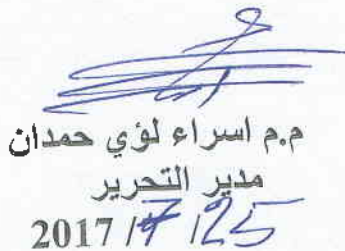 م.م اسراء لؤي حمدان
مدير التحرير
2017 / 7 / 25